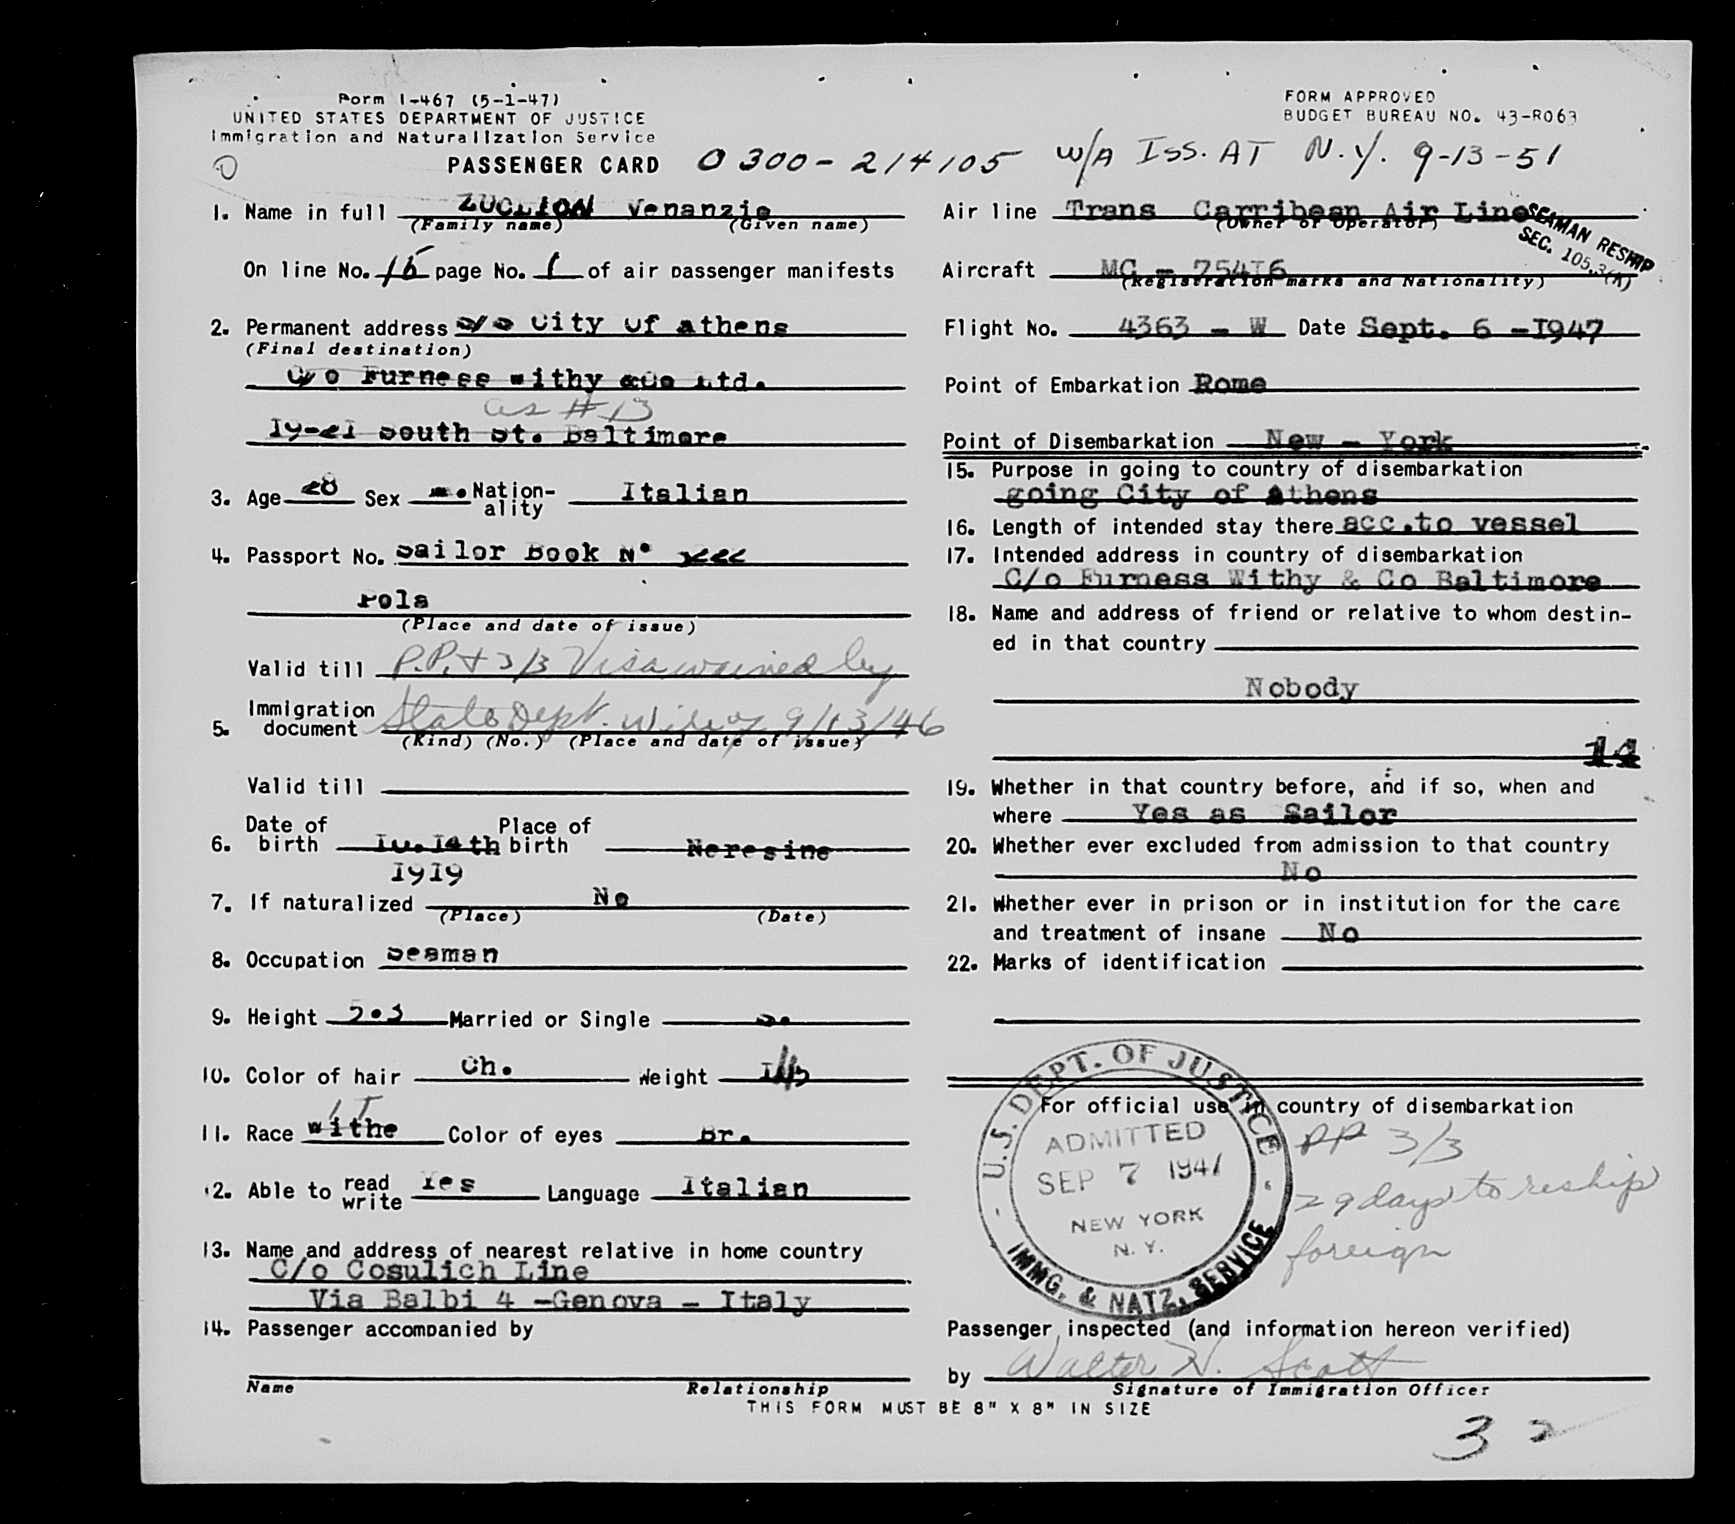 Form I-467 (5-1-47)
UNITED STATES DEPARTMENT OF JUSTICE
Immigration and Naturalization Service
FORM APPROVED
BUDGET BUREAU NO. 43-R063
PASSENGER CARD 0300-214105 W/A ISS. AT N.Y. 9-13-51
1. Name in full Venanzio
(Family name) (Given name)
On line No. 15 page No. 1 of air passenger manifests
2. Permanent address s/s City of Athens
(Final destination)
C/o Furness Withy &Co Ltd.
as #13
19-21 South St. Baltimore
3. Age 28 Sex m. Nation-ality Italian
4. Passport No. Sailor Book N°
Pola
(Place and date of issue)
Valid till P.P. + 3/3 Visa waived by
5. Immigration document State Dept. 9/13/46
(Kind) (No.) (Place and date of issue)
Valid till
6. Date of birth 10.14th Place of birth Neresine
1919
7. If naturalized No
(Place) (Date)
8. Occupation Seaman
9. Height 5.5 Married or Single S.
10. Color of hair Ch. Weight
IT
11. Race withe Color of eyes Br.
12. Able to read write Yes Language Italian
13. Name and address of nearest relative in home country
C/o Cosulich Line
Via Balbi 4 -Genova - Italy
14. Passenger accompanied by
Name Relationship
Air line Trans Carribean Air Line
(Owner or Operator)
SEAMAN RESHIP
SEC. 105.3(A)
Aircraft MC - 75416
(Registration marks and Nationality)
Flight No. 4363 - W Date Sept. 6 -1947
Point of Embarkation Rome
Point of Disembarkation New - York
15. Purpose in going to country of disembarkation
going City of Athens
16. Length of intended stay there acc.to vessel
17. Intended address in country of disembarkation
C/o Furness Withy & Co Baltimore
18. Name and address of friend or relative to whom destin-
ed in that country
Nobody
14
19. Whether in that country before, and if so, when and
where Yes as Sailor
20. Whether ever excluded from admission to that country
No
21. Whether ever in prison or in institution for the care
and treatment of insane No
22. Marks of identification
For official use in country of disembarkation
U.S. DEPT. OF JUSTICE
ADMITTED
SEP 7 1947
NEW YORK
N. Y.
IMMG. & NATZ. SERVICE
PP 3/3
29 days to reship
foreign
Passenger inspected (and information hereon verified)
by Walter H. Scott
Signature of Immigration Officer
THIS FORM MUST BE 8" X 8" IN SIZE
32